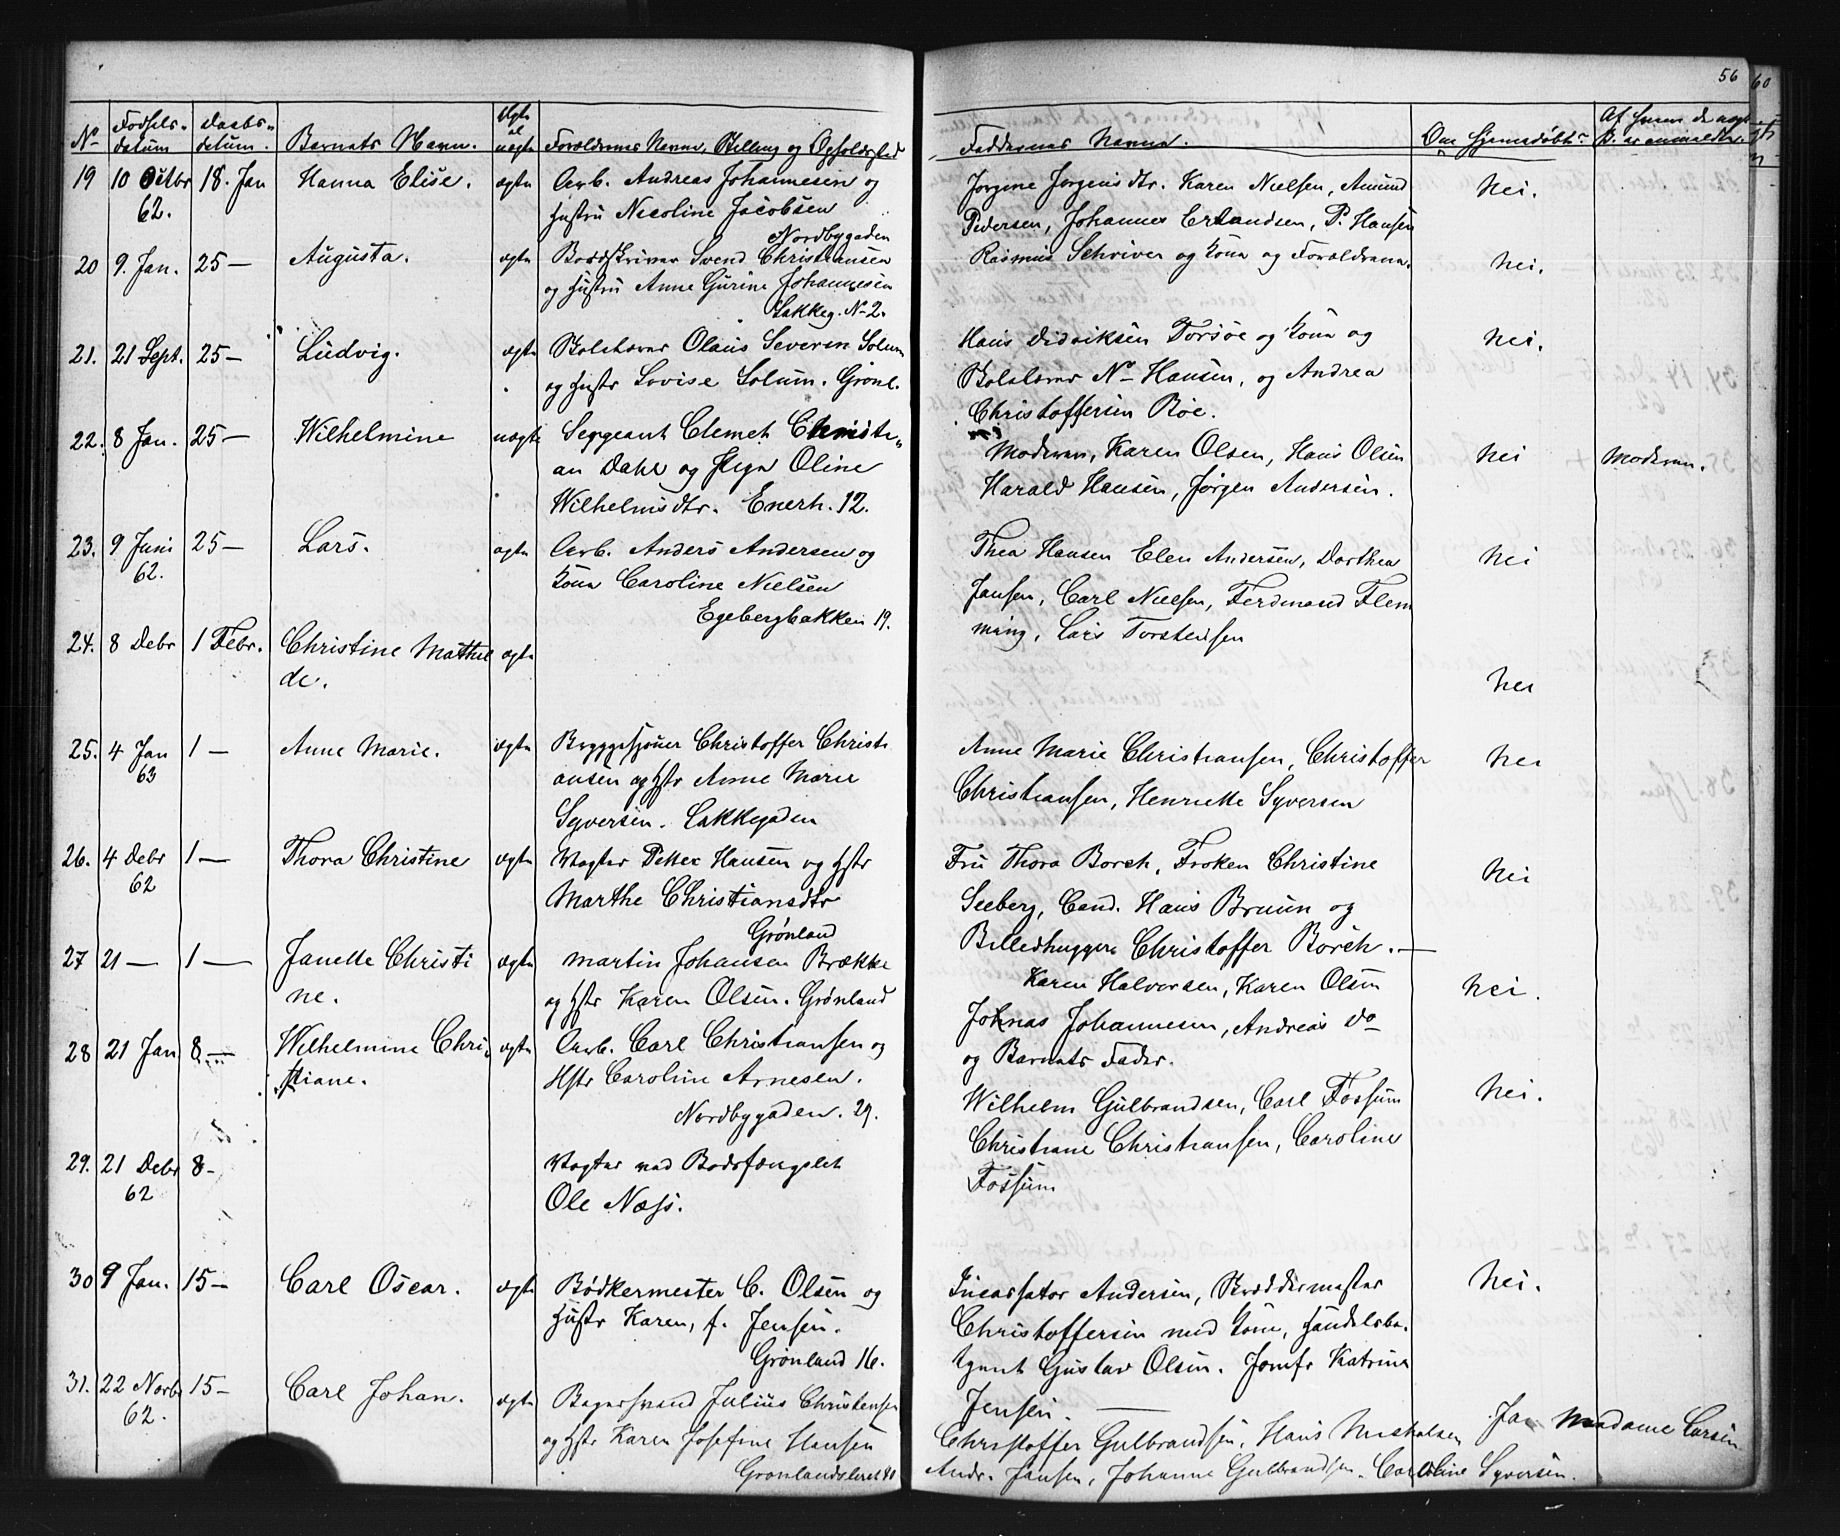 56
60
No
Fødsels-
datum
Daabs-
datum.
Barnets Navn.
Ægte
el
uægte
Forældrenes Navne, Stilling og Opholdssted
Faddernes Navne.
Om hjemmedøbt
Af hvem de uægt.
B. er anmeldte.
19 10 Octbr 18. Jan Hanna Elise. ægte Arb. Andreas Johannesen og
62. Hustru Nicoline Jacobsen
Nordbygaden
Jørgine Jørgensdtr. Karen Nielsen, Amund
Pedersen, Johannes Erlandsen, P. Hansen
Nei.
20 9. Jan. 25 — Augusta. ægte Bordskriver Svend Christiansen
og Hustru Anne Gurine Johannesen
Lakkeg. No 2.
Rasmus Schriver og Kone og Forældrene.
Nei.
21. 21 Sept. 25 — Ludvig. ægte Skolelærer Olaus Severin Solum
og Hustr Lovise Solum. Grønl.
Hans Didriksen Torsøe og Kone og
Skolelærer N— Hansen, og Andrea
Christoffersen Röe.
Nei.
22. 8 Jan. 25 — Wilhelmine uægte Sergeant Clemet Christi-
an Dahl og Pige Oline
Wilhelmsdtr. Enerh. 12.
Moderen, Karen Olsen, Hans Olsen
Harald Hansen, Jørgen Andersen.
Nei Moderen.
23. 9 Juni 25 — Lars. ægte Arb. Anders Andersen og
62. Kone Caroline Nielsen
Egebergbakken 19.
Thea Hansen Elen Andersen, Dorthea
Jansen, Carl Nielsen, Ferdinand Flem
ming, Lars Torstensen
Nei
24. 8 Debr 1 Febr. Christine Mathil ægte
de.
Nei
25. 4 Jan 1 — Anne Marie. ægte Bryggesjouer Christoffer Christi
63 ansen og Hstr Anne Marie
Syversen. Lakkegaden
Anne Marie Christiansen, Christoffer
Christiansen, Henriette Syversen
Nei
26. 4 Debr 1 — Thora Christine ægte Vægter Petter Hansen og Hstr
62 Marthe Christiansdtr
Grønland
Fru Thora Borch, Frøken Christine
Seeberg, Cand. Hans Bruun og
Billedhugger Christoffer Borch. —
Nei
27 21 — 1 — Janette Christi ægte Martin Johansen Brække
ne. og Hstr Karen Olsen. Grønland
Karen Halvorsen, Karen Olsen
Johnas Johannesen, Andreas Do
og Barnets Fader.
Nei.
28 21 Jan 8 — Wilhelmine Chri- ægte Arb. Carl Christiansen og
stiane. Hstr Caroline Arnesen.
Nordbygaden. 29.
Wilhelm Gulbrandsen, Carl Fossum
Christiane Christiansen, Caroline
Fossum
Nei.
29. 21 Debr 8 - Vogter ved Bodsfængslet
62 Ole Næss.
30 9 Jan. 15 — Carl Oscar. ægte Bødkermester C. Olsen og
Hustr Karen, f. Jensen.
Grønland 16.
Incassator Andersen, Skræddermester
Christoffersen med Kone, Handelsbe-
tyent Gustav Olsen. Jomfr Katrine
Jensen. —
Nei.
31. 22 Novbr 15 — Carl Johan. ægte Bagersvend Julius Christensen
62. og Hstr Karen Josefine Hansen
Grønlandsleret 40
Christoffer Gulbrandsen, Hans Mikalsen
Andr. Jansen, Johanne Gulbrandsen. Caroline Syversen.
Ja Madame Larsen